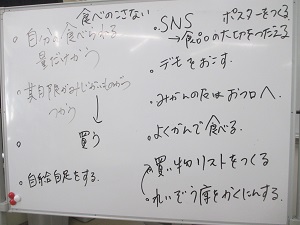 食べのこさない
・自分が食べられる
量だけかう
・賞味期限がみじかいものから
つかう
↓
・買う
・自給自足をする。
・SNS ポスターをつくる
→食品のたいせつさをつたえる
・デモをおこす。
・みかんの皮はおフロへ。
・よくかんで食べる。
・買い物リストをつくる
・れいぞう庫をかくにんする。